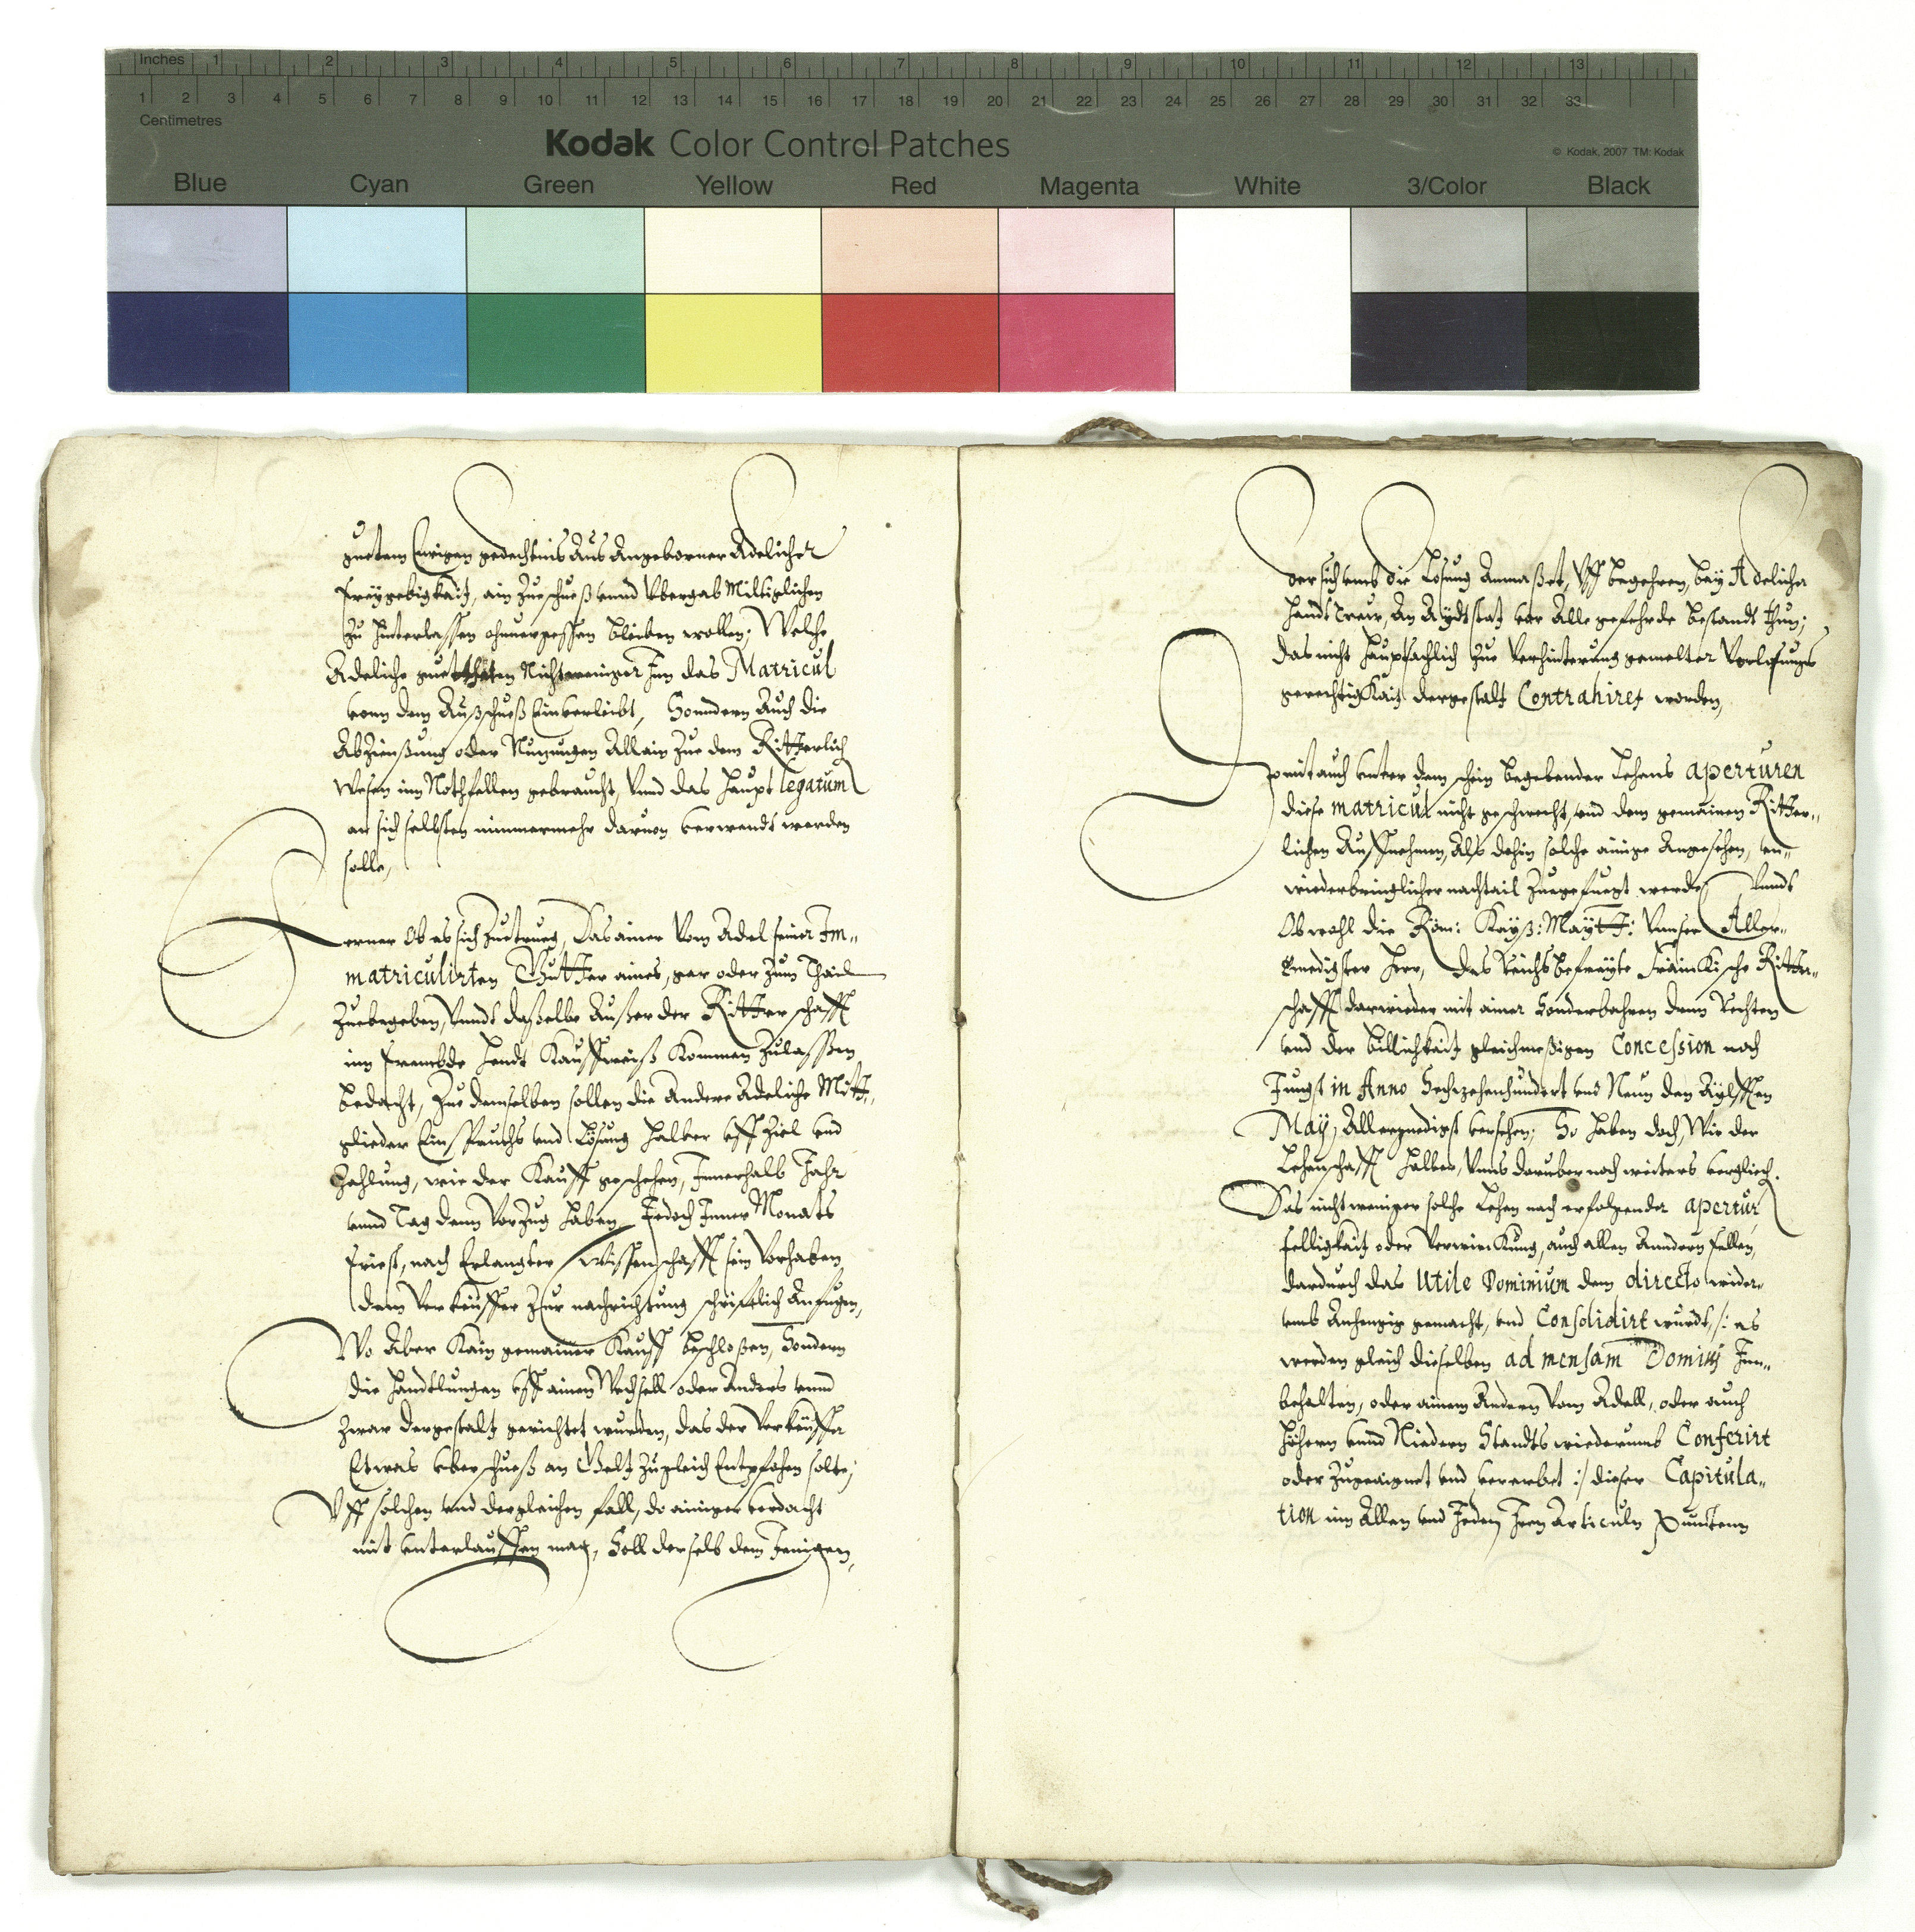 Inches 1 2 3 4 5 6 7 8 9 10 11 12 13
1 2 3 4 5 6 7 8 9 10 11 12 13 14 15 16 17 18 19 20 21 22 23 24 25 26 27 28 29 30 31 32 33
Centimetres
Kodak Color Control Patches
© Kodak, 2007 TM: Kodak
Blue Cyan Green Yellow Red Magenta White 3/Color Black
guetem Ewigen gedechtnis Aus Angeborner Adelicher
freygebigkait, ain Zueschueß vnnd Vbergab Miltiglichen
Zu hinterlassen ohnuergessen bleiben wollen; Welche
Adeliche guetthäten Nichtweniger Inn das Matricul
vonn dem Außschueß Einverleibt, Sonndern Auch die
Abzienßung oder Nuzungen Allain Zue dem Ritterlich
Wesen inn Nothfellen gebraucht, Vnnd das haupt legatum
an sich selbsten nimmermehr daruon verwendt werden
solle,
Ferner Ob es sich Zuetrueg, Das ainer Vom Adel seiner Im„
matriculirten Gütter aines, gar oder Zum Thail
Zuebegeben, Vnndt daßelbe Außer der Ritterschafft
inn frembde hendt Kauffweiß Kommen Zulassen
bedacht, Zue demselben sollen die Andere Adeliche Mitt„
glieder Einspruchs vnd Lösung halber vff Ziel vnd
Zahlung, wie der Kauff geschehen, Innerhalb Jahr
vnnd Tag denn Vorzug haben, Jedoch Inner Monats
friest, nach Erlangter Wissenschafft sein Vorhaben
dem Verkeüffer Zur nachrichtung schriftlich Anfügen,
Wo Aber Kain gemainer Kauff beschloßen, Sondern
die Handtlungen vff ainen Wechsell oder Anders vnnd
Zwar dergestalt gerichtet wurden, das der Verkeüffer
Etwas vberschueß an Gelt Zugleich Entpfahen solte,
Vff solchen vnd dergleichen fall, do ainiger verdacht
mit vnterlauffen mag, Soll derselb dem Jenigen,
der sich vmb die Lösung Anmaßet, Vff begehren, bey Adelicher
handt trew, An Aydtstat vor Alle gefehrde bestandt thun;
das nicht hauptsachlich Zue Verhinterung gemelter Vorlosungs
gerechtigkait dergestalt Contrahiret worden,
Damit auch vnter dem schein begebender Lehens aperturen
diese matricul nicht geschwecht, vnd dem gemainen Ritter„
lichen Auffnehmen, Als dahin solche ainige Angesehen, vn„
wiederbringlicher nachtail Zuegefuegt werde, Vnndt
Ob wohl die Röm: Kayß: Maytt: Vnnser Aller„
Gnedigster Herr, das Reichs befreyte fränkische Ritter„
schafft darwieder mit ainer Sonderbahren dem Rechten
vnd der billichkait gleichmeßigen Concession noch
Jungst in Anno Sechzehenhundert vnd Neun den Aylfften
May, Allergnedigst versehen; So haben doch, Wir der
Lehenschafft halber, Vnns daruber noch weiters verglich.
Das nicht weniger solche Lehen nach erfolgender apertur
felligkait oder Verwirckung, auch allen Anndern fellen,
dardurch das Utile Dominium dem directo wider„
vmb Anhengig gemacht, vnd Consolidirt wurdt, /: es
werden gleich dieselben ad mensam Domini Inn„
behalten, oder ainem Andern Vom Adell, oder auch
höhern vnnd Niedern Standts wiederumb Conferirt
oder Zugeaignet vnd vererbet :/ dieser Capitula„
tion inn Allen vnd Jeden Iren Articuln Puncten